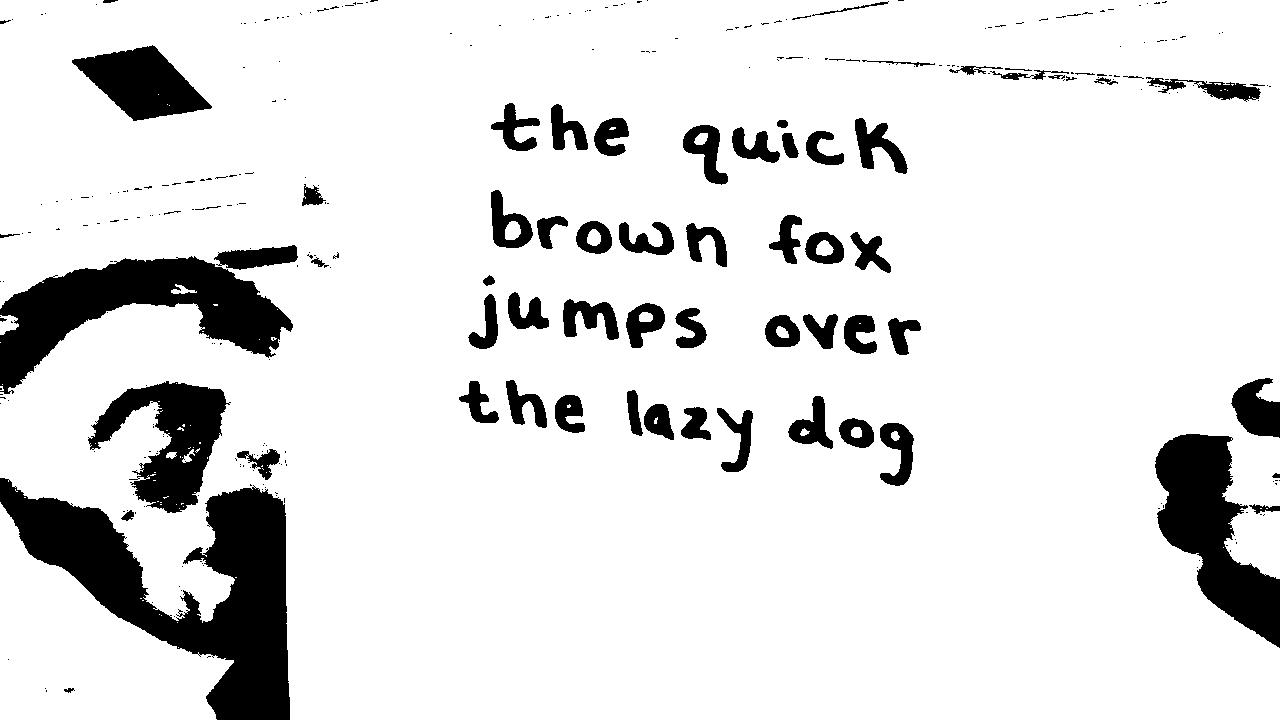 the quick
brown fox
jumps over
the lazy dog